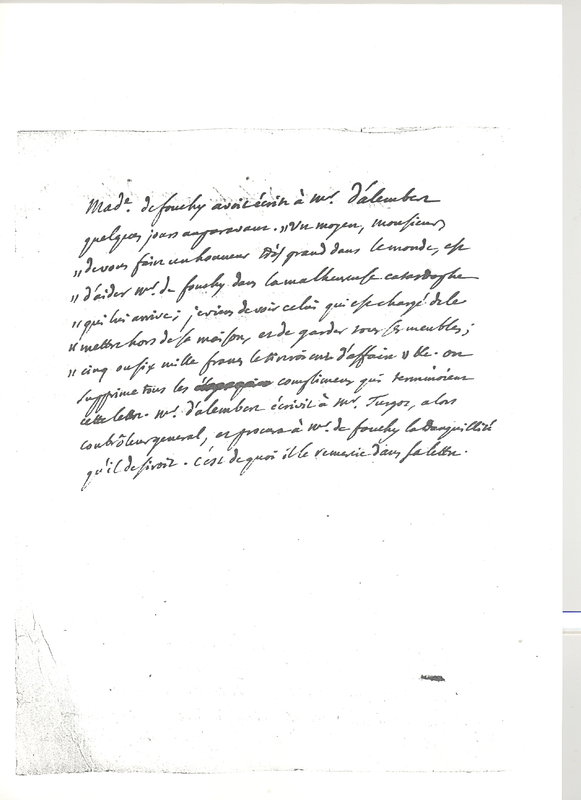 Made. de fouchy avoit écrit à mr. d'alembert
quelques jours auparavant. "Un moyen, monsieur,
"de vous faire un honneur très grand dans le monde, est
"d'aider mr. de fouchy dans la malheureuse catastrophe
"qui lui arrive; je viens de voir celui qui est chargé de le
"mettre hors de sa maison, et de garder tous ses meubles;
"cinq ou six mille francs le tireroient d'affaire" &c. on
supprime tous les complimens qui terminoient
cette lettre. mr. d'alembert écrivit à mr. Turgot, alors
contrôleur general, et procura à mr. de fouchy la tranquillité
qu'il desiroit. c'est de quoi il le remercie dans sa lettre.